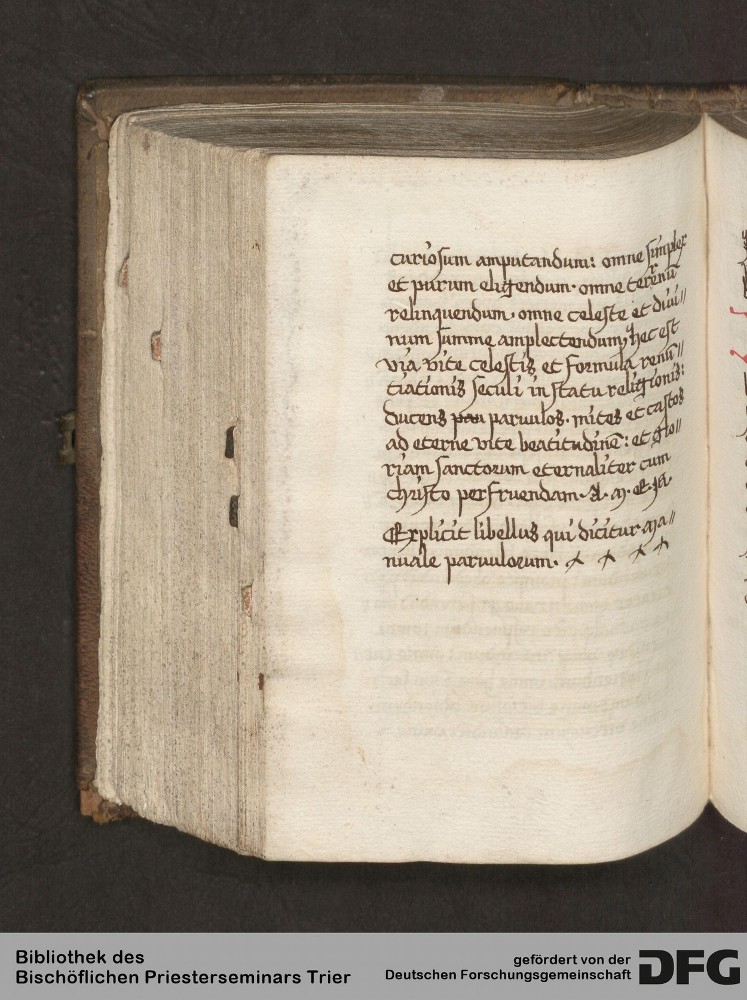 curiosum amputandum: omne simplex
et purum eligendum. omne terrenū
relinquendum. omne celeste et diui//
num summe amplectendum, hec est
via vite celestis et formula renū//
tiationis seculi in statu religionis:
ducens paruulos. mites et castos
ad eterne vite beatitudinē: et glo//
riam sanctorum eternaliter cum
christo perfruendam. A. M. E.
Explicit libellus qui dicitur Ma//
nuale paruulorum.
Bibliothek des
Bischöflichen Priesterseminars Trier
gefördert von der
Deutschen Forschungsgemeinschaft DFG